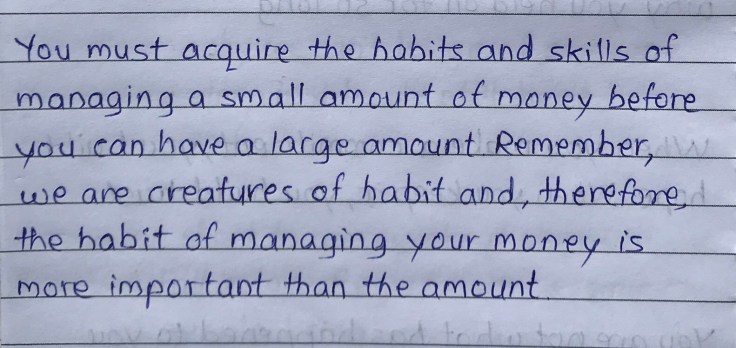 You must acquire the habits and skills of
managing a small amount of money before
you can have a large amount Remember,
we are creatures of habit and, therefore,
the habit of managing your money is
more important than the amount.